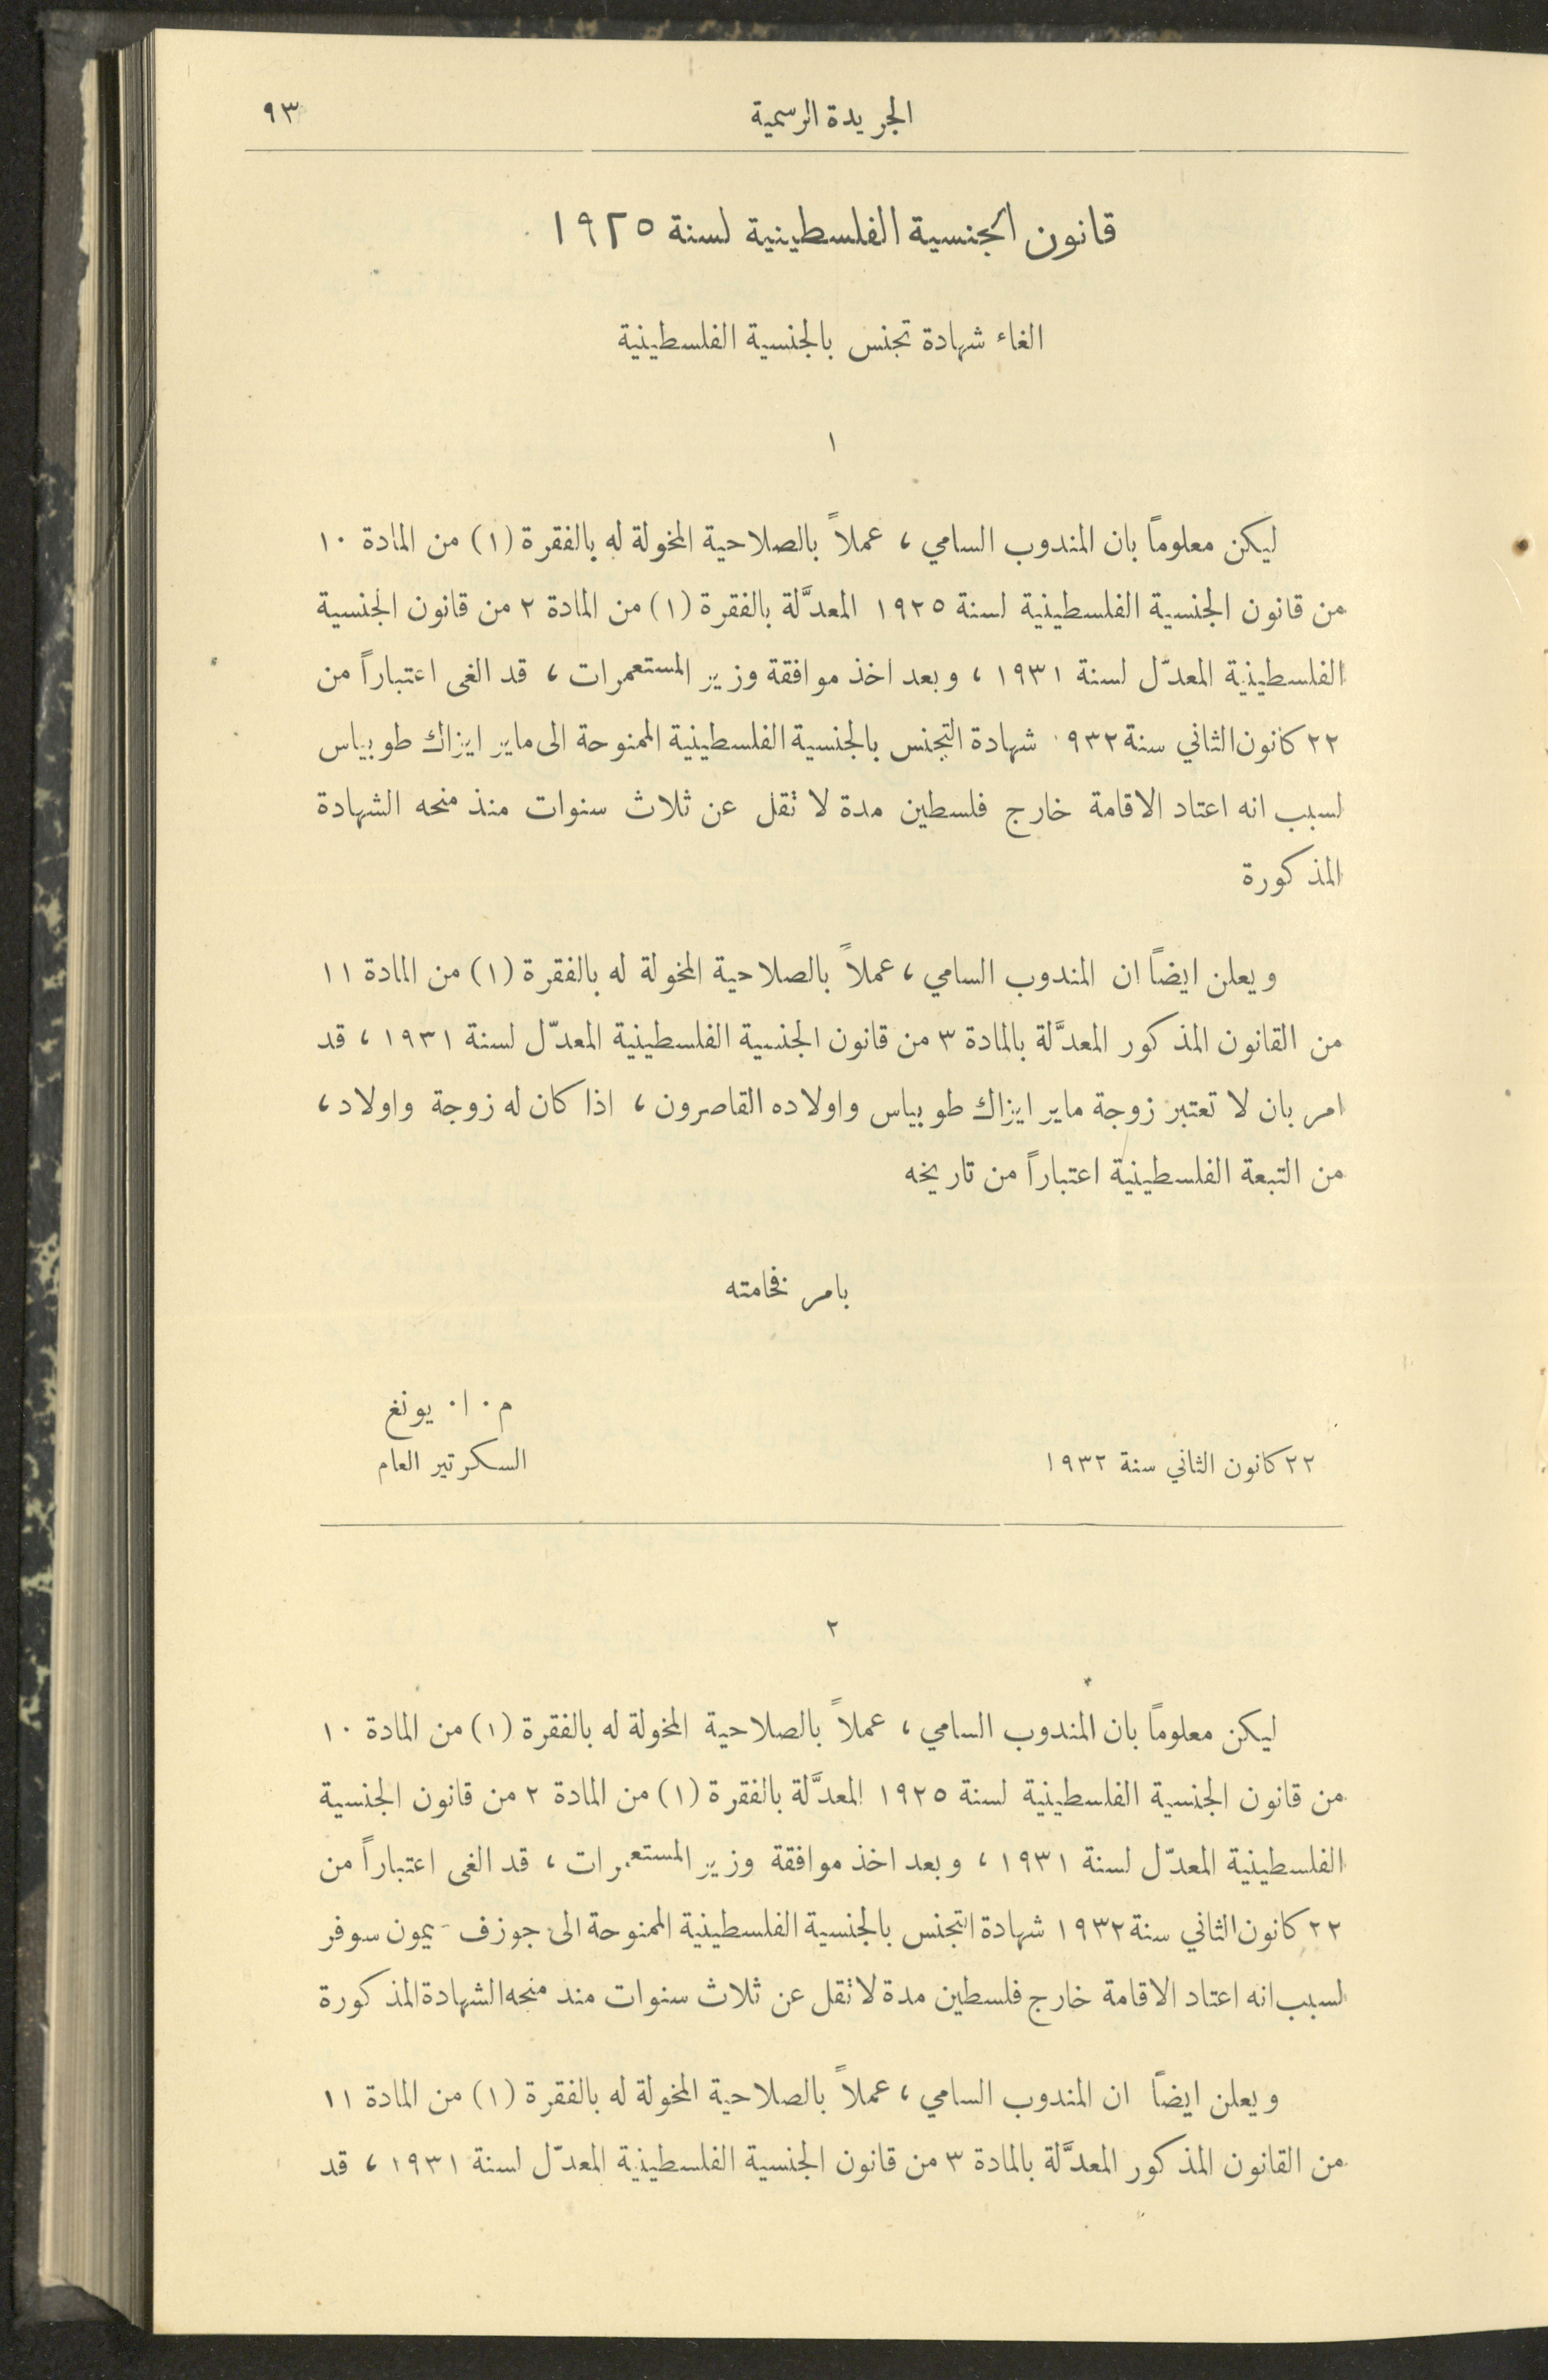 الجريدة الرسمية
٩٣
قانون الجنسية الفلسطينية لسنة ١٩٢٥
الغاء شهادة تجنس بالجنسية الفلسطينية
١
ليكن معلوماً بان المندوب السامي ، عملاً بالصلاحية المخولة له بالفقرة (١) من المادة ١٠
من قانون الجنسية الفلسطينية لسنة ١٩٢٥ المعدَّلة بالفقرة (١) من المادة ٢ من قانون الجنسية
الفلسطينية المعدّل لسنة ١٩٣١ ، وبعد اخذ موافقة وزير المستعمرات ، قد الغى اعتباراً من
٢٢ كانون الثاني سنة ١٩٣٢ شهادة التجنس بالجنسية الفلسطينية الممنوحة الى ماير ايزاك طوبياس
لسبب انه اعتاد الاقامة خارج فلسطين مدة لا تقل عن ثلاث سنوات منذ منحه الشهادة
المذكورة
ويعلن ايضاً ان المندوب السامي ، عملاً بالصلاحية المخولة له بالفقرة (١) من المادة ١١
من القانون المذكور المعدَّلة بالمادة ٣ من قانون الجنسية الفلسطينية المعدّل لسنة ١٩٣١ ، قد
امر بان لا تعتبر زوجة ماير ايزاك طوبياس واولاده القاصرون ، اذا كان له زوجة واولاد ،
من التبعة الفلسطينية اعتباراً من تاريخه
بامر فخامته
م٠ ا٠ يونغ
٢٢ كانون الثاني سنة ١٩٣٢ السكرتير العام
٢
ليكن معلوماً بان المندوب السامي ، عملاً بالصلاحية المخولة له بالفقرة (١) من المادة ١٠
من قانون الجنسية الفلسطينية لسنة ١٩٢٥ المعدَّلة بالفقرة (١) من المادة ٢ من قانون الجنسية
الفلسطينية المعدّل لسنة ١٩٣١ ، وبعد اخذ موافقة وزير المستعمرات ، قد الغى اعتباراً من
٢٢ كانون الثاني سنة ١٩٣٢ شهادة التجنس بالجنسية الفلسطينية الممنوحة الى جوزف سوفر
لسبب انه اعتاد الاقامة خارج فلسطين مدة لا تقل عن ثلاث سنوات مند منحه الشهادة المذكورة
ويعلن ايضاً ان المندوب السامي ، عملاً بالصلاحية المخولة له بالفقرة (١) من المادة ١١
من القانون المذكور المعدَّلة بالمادة ٣ من قانون الجنسية الفلسطينية المعدّل لسنة ١٩٣١ ، قد